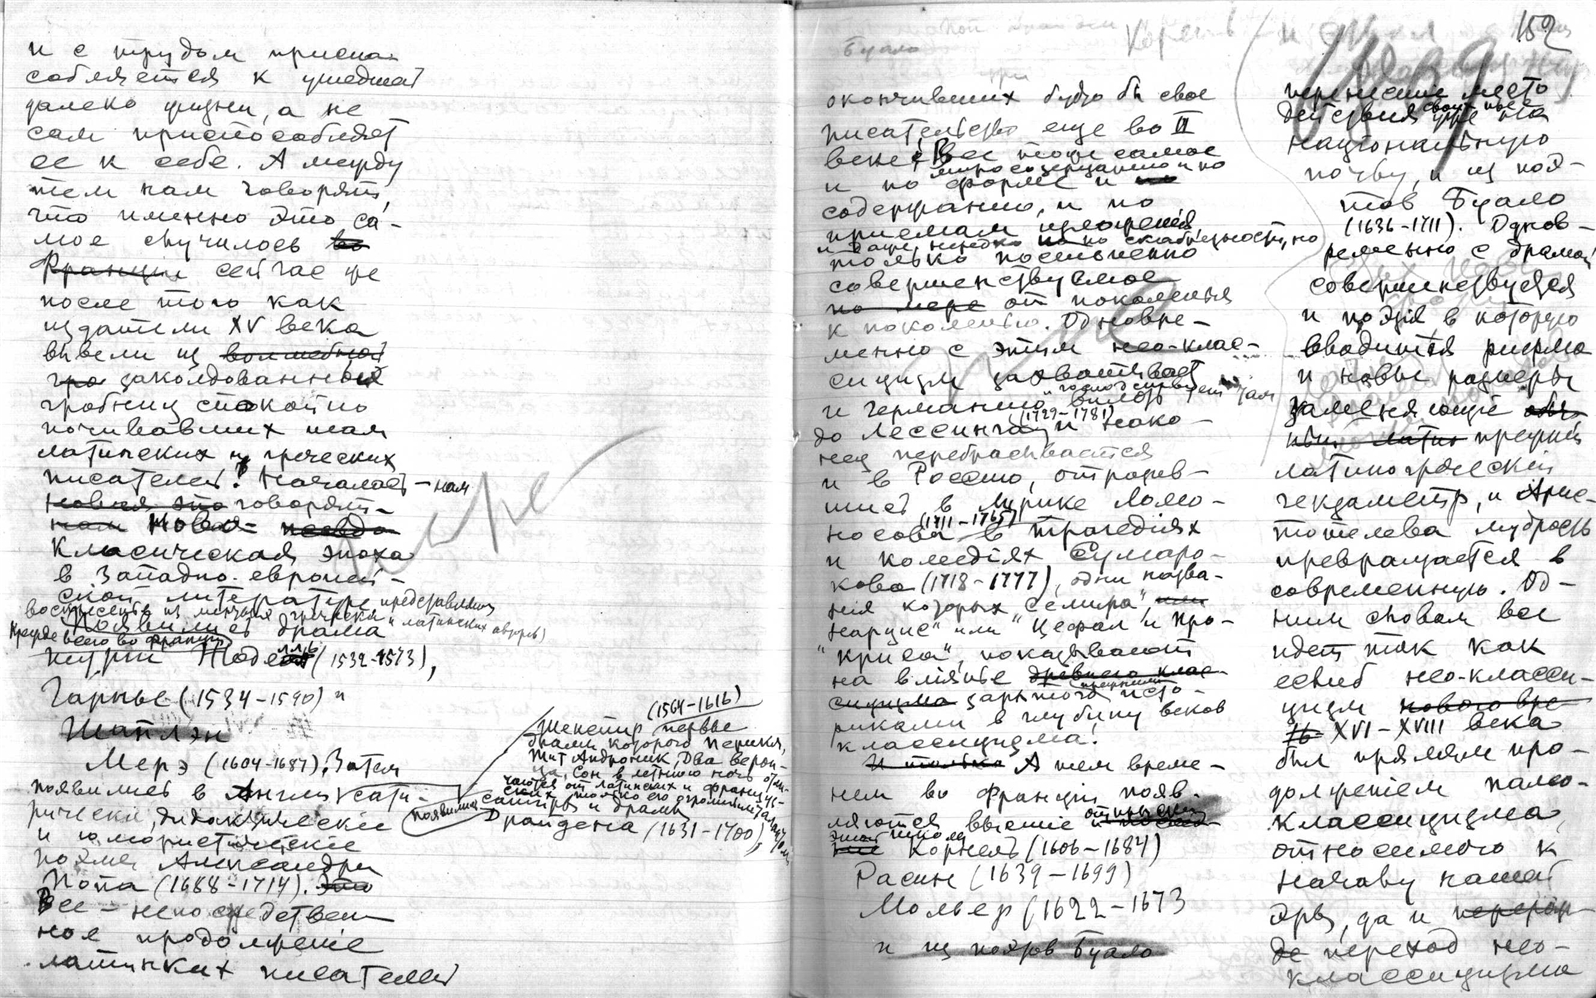 и с трудом приспо-
собляется к ушедшей
далеко жизни, а не
сам приспособляет
ее к себе. А между
тем нам говорят,
что именно это са-
мое случилось во
Франции сейчас же
после того как
издатели XV века
вывели из волшебной
гро заколдованной
гробниц спокойно
почивавших там
латинских и греческих
писателей! Началась - нам
новая это говорят -
нам новая псевдо
классическая эпоха
в западно-европей-
ской литературе
воскресить из
Появились драма
Прежде всего во Франции
Жоделль (1532-1573),
Гарнье (1534-1590) и
Шаплэн
Мерэ (1604-1687). Затем
появились в Англии сати-
рическия, дидактическия
и юмористическия
поэмы Александра
Попа (1688-1714). Это
Все - непосредствен-
ное продолжение
латинских писателей
(1564-1616)
Шекспир первые
драмы которого Перикл,
Тит Андроник, Два верон-
ца, Сон в летнюю ночь отли-
чаются от латинских и француз-
ских только его огромным талантом,
появились сатиры и драмы
Драйдена (1631-1700),
152
Буало
Корень
окончивших будто бы свое
писательство еще во II
веке. Все тоже самое
миросозерцанию и по
и по форме и
содержанию, и по
приемам изложения,
и даже нередко по скабрезности, но
только постепенно
совершенствуемое
по мере от поколения
к поколению. Одновре-
менно с этим нео-клас-
сицизм захватывает
и Германию, господствует там вплоть
до Лессинга (1729-1781) и нако-
нец перебрасывается
и в Россию, отразив-
шись в лирике Ломо-
носова (1711-1765) в трагедиях
и комедиях Сумаро-
кова (1718-1777), одни назва-
ния которых "Семира", или
Нарцис" или "Цефал и Про-
крис", показывают
на влияние древнего клас-
сицизма
риками в глубину веков
классицизма!
И только А тем време-
нем во Франции появ-
ляются высшие
Корнель (1606-1684)
Расин (1639-1699)
Мольер (1622-1673
и из поэтов Буало
перенесшие место
действия своих пьес уже на
национальную
почву, и из поэ-
тов Буало
(1636-1711). Однов-
ременно с драмой
совершенствуется
и поэзия, в которую
вводится рифма
и новые размеры
заменяющие
прежний
латиногреческий
гекзаметр, и Арис-
тотелева мудрость
превращается в
современную. Од-
ним словом все
идет так как
еслиб нео-класси-
цизм нового вре
16 XVI-XVIII века
был прямым про-
должением палео-
классицизма,
относимого к
началу нашей
эры, да и перехо-
де переход нео-
классицизма